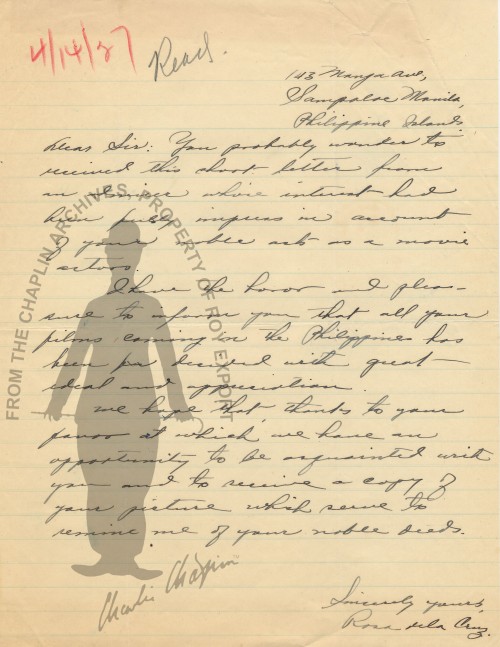 4/14/27 Read.
143 Manga Ave,
Sampaloc Manila,
Philippine Islands
Dear Sir: You probably wonder to
received this short letter from
an admirer whose interest had
been fully impress in account
of your noble act as a movie
actors.
I have the honor and pleas-
sure to inform you that all your
films coming in the Philippines has
been received with great
ideal and appreciation.
We hope that, thanks to your
favor at which, we have an
opportunity to be acquainted with
you and to receive a copy of
your picture which serve to
remind me of your noble deeds.
Sincerely yours,
Rosa dela Cruz.
FROM THE CHAPLIN ARCHIVES, PROPERTY OF ROY EXPORT
Charlie Chaplin